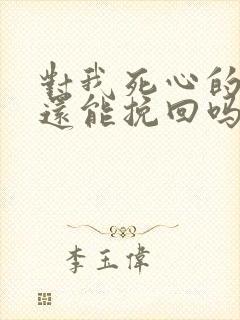 對我死心的
還能挽回嗎
李玉偉